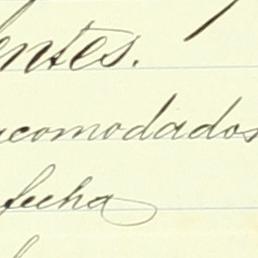 entes.
acomodados
fecha